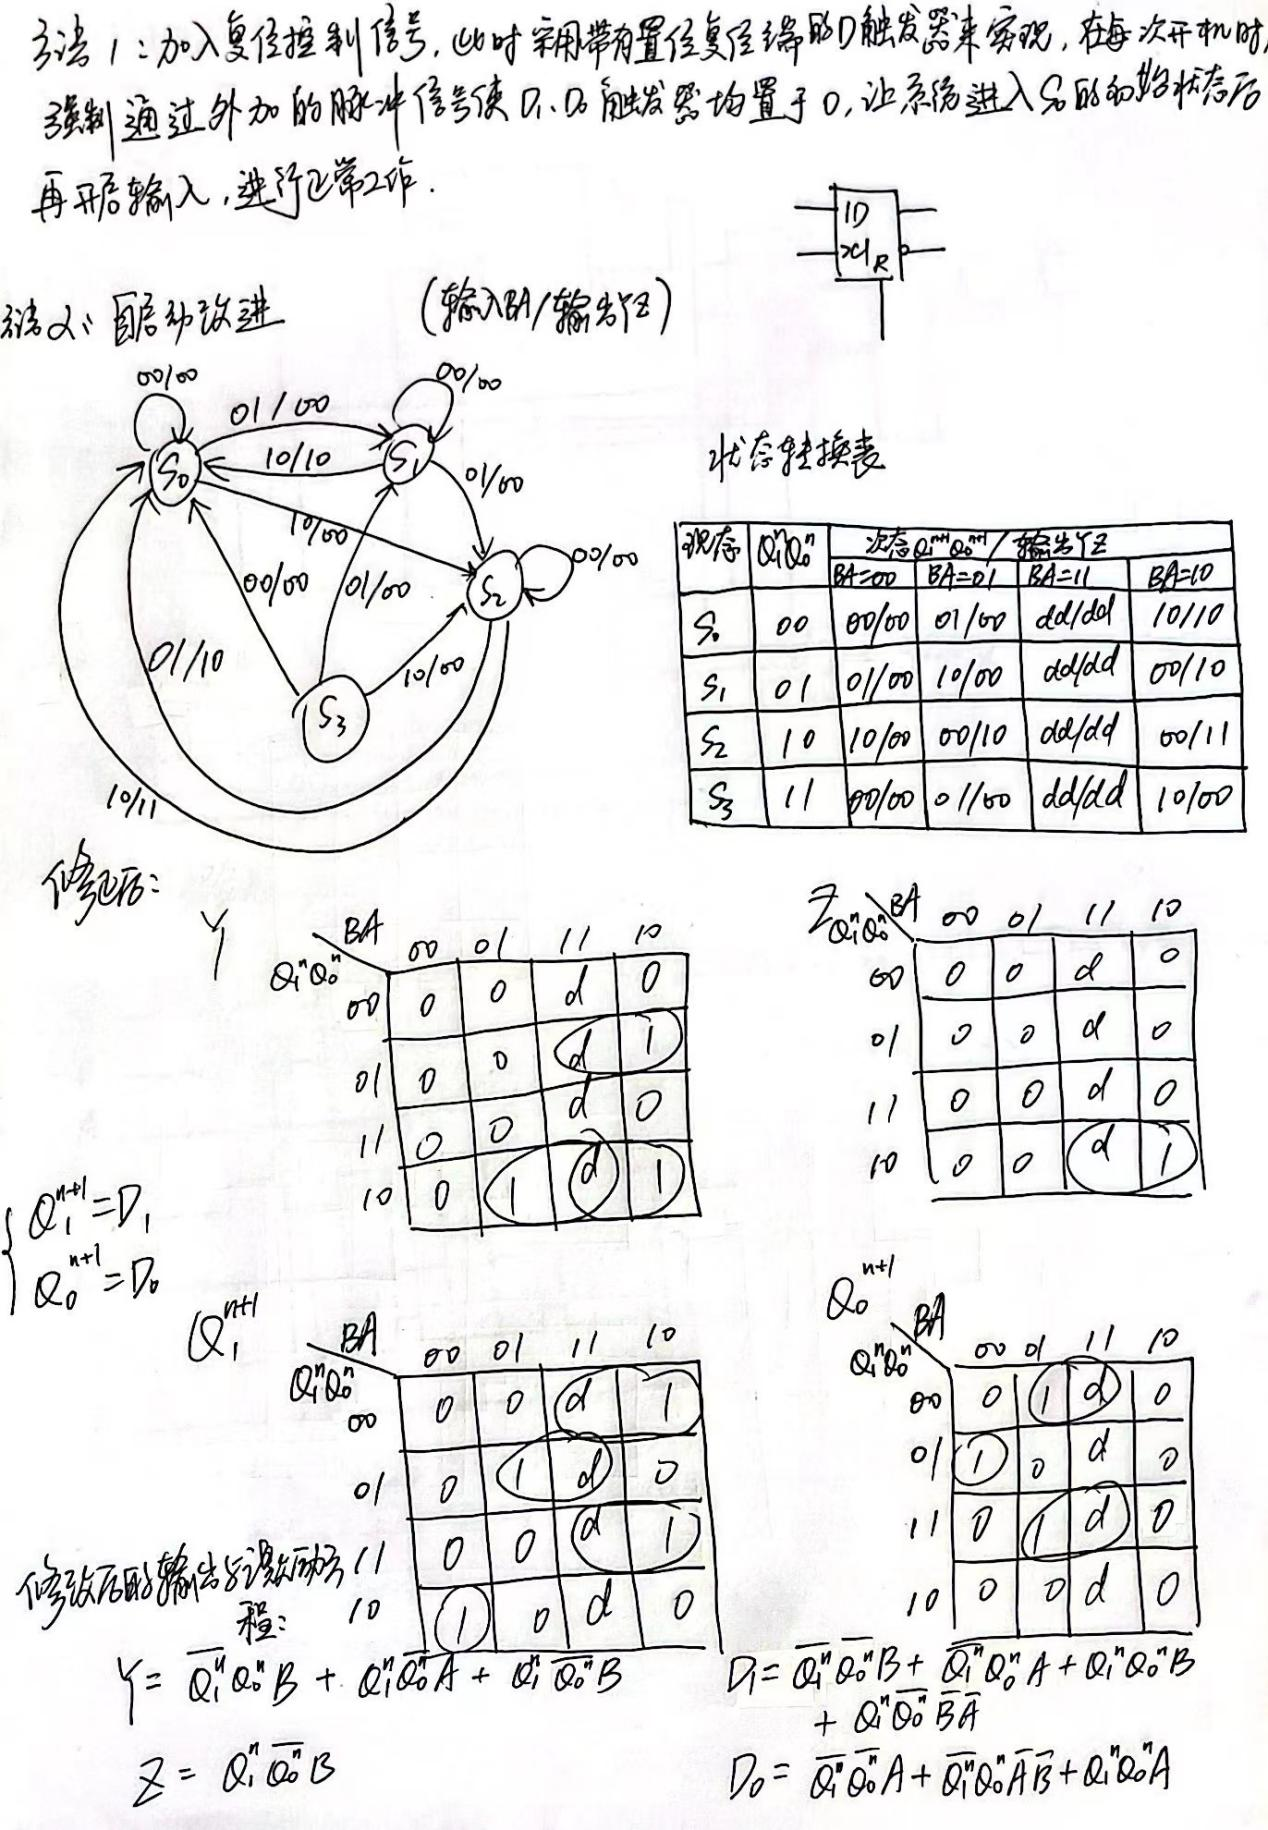 方法1：加入复位控制信号，此时采用带有置位复位端的D触发器来实现，在每次开机时，
强制通过外加的脉冲信号使D₁、D₀触发器均置于0，让系统进入S₀的初始状态后
再开启输入，进行正常工作.
1D
>C1 R
方法2：自启动改进 (输入BA/输出YZ)
00/00
00/00
01/00
S₀
10/10
S₁
01/00
10/00
00/00
00/00
01/00
S₂
01/10
10/00
S₃
10/11
状态转换表
现态 Q₁ⁿQ₀ⁿ 次态Q₁ⁿ⁺¹Q₀ⁿ⁺¹/输出YZ
BA=00 BA=01 BA=11 BA=10
S₀ 00 00/00 01/00 dd/dd 10/10
S₁ 01 01/00 10/00 dd/dd 00/10
S₂ 10 10/00 00/10 dd/dd 00/11
S₃ 11 00/00 01/00 dd/dd 10/00
Y
BA
Q₁ⁿQ₀ⁿ
00 01 11 10
00 0 0 d 0
01 0 0 d 1
11 0 0 d 0
10 0 1 d 1
Z
BA
Q₁ⁿQ₀ⁿ
00 01 11 10
00 0 0 d 0
01 0 0 d 0
11 0 0 d 0
10 0 0 d 1
Q₁ⁿ⁺¹=D₁
Q₀ⁿ⁺¹=D₀
Q₁ⁿ⁺¹
BA
Q₁ⁿQ₀ⁿ
00 01 11 10
00 0 0 d 1
01 0 1 d 0
11 0 0 d 1
10 1 0 d 0
Q₀ⁿ⁺¹
BA
Q₁ⁿQ₀ⁿ
00 01 11 10
00 0 1 d 0
01 1 0 d 0
11 0 1 d 0
10 0 0 d 0
修改后的输出与激励方
程：
Y = Q̅₁ⁿQ₀ⁿB + Q₁ⁿQ̅₀ⁿA + Q₁ⁿQ̅₀ⁿB
Z = Q₁ⁿQ̅₀ⁿB
D₁ = Q̅₁ⁿQ̅₀ⁿB + Q̅₁ⁿQ₀ⁿA + Q₁ⁿQ₀ⁿB
+ Q₁ⁿQ̅₀ⁿB̅A̅
D₀ = Q̅₁ⁿQ̅₀ⁿA + Q̅₁ⁿQ₀ⁿA̅B̅ + Q₁ⁿQ₀ⁿA